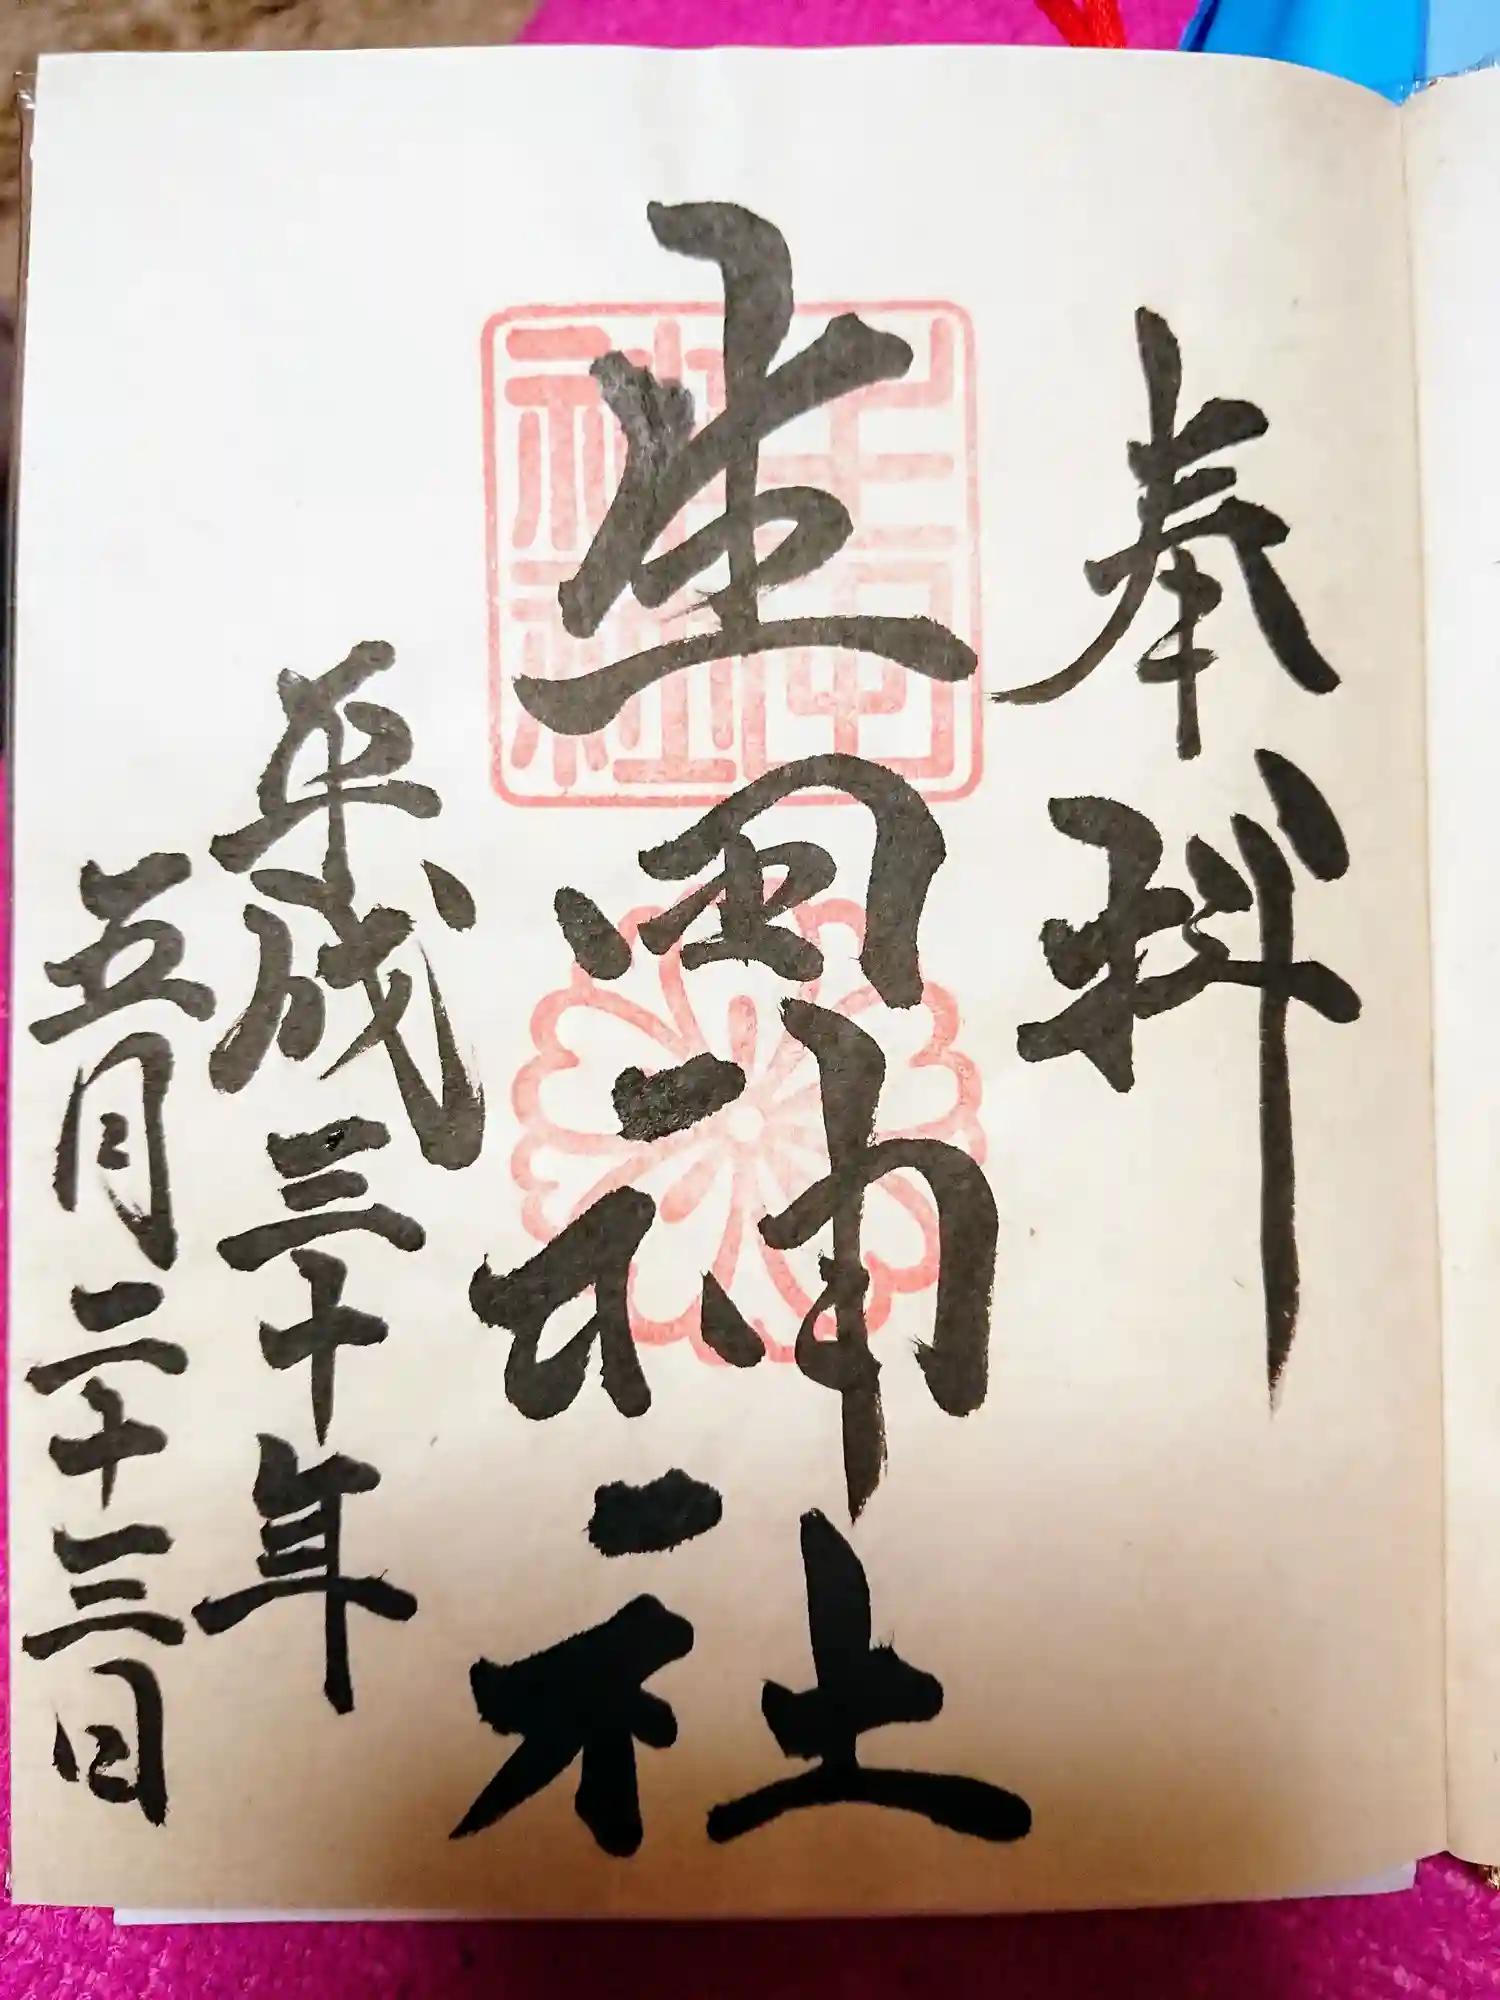 奉拝
生田神社
生田神社
平成三十年
五月二十三日